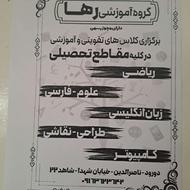 گروه آموزشی رها
دارای مجوز رسمی
برگزاری کلاس های تقویتی و آموزشی
در کلیه مقاطع تحصیلی
ریاضی
علوم - فارسی
زبان انگلیسی
طراحی - نقاشی
کامپیوتر
دورود - ناصرالدین - خیابان شهدا - شاهد ۲۲